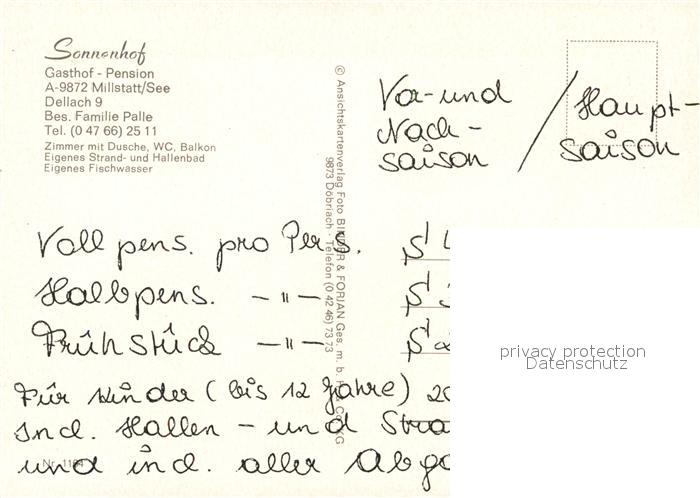 Sonnenhof
Gasthof - Pension
A-9872 Millstatt/See
Dellach 9
Bes. Familie Palle
Tel. (0 47 66) 25 11
Zimmer mit Dusche, WC, Balkon
Eigenes Strand- und Hallenbad
Eigenes Fischwasser
© Ansichtskartenverlag Foto & FORJAN Ges. m. b.
9873 Döbriach - Telefon (0 42 46) 73 73
Vor-und
Nach-
saison
/
Haupt-
saison
Voll pens. pro Pers. S
Halbpens. — " — S
Frühstück — " — S
Für Kinder (bis 12 Jahre) 20
Incl. Hallen - und Stra
und incl. aller Abga
privacy protection
Datenschutz